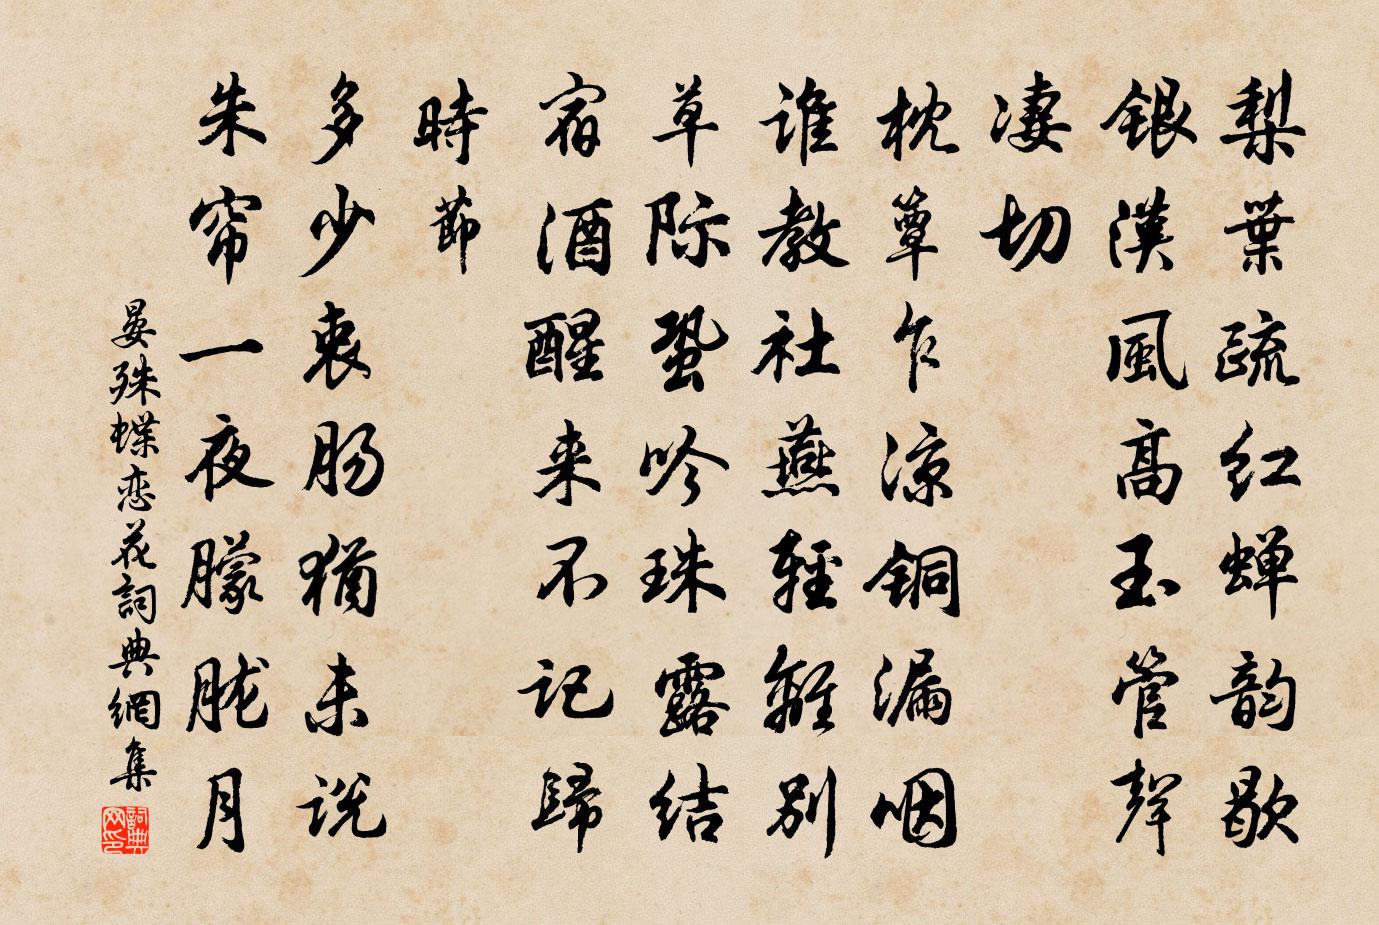 梨葉疏红蝉韵歇
银漢風高玉管聲
凄切
枕簟乍凉铜漏咽
谁教社燕輕離别
草际蛩吟珠露结
宿酒醒来不记歸
時節
多少衷肠猶未说
朱帘一夜朦胧月
晏殊蝶恋花詞典網集
詞典网印